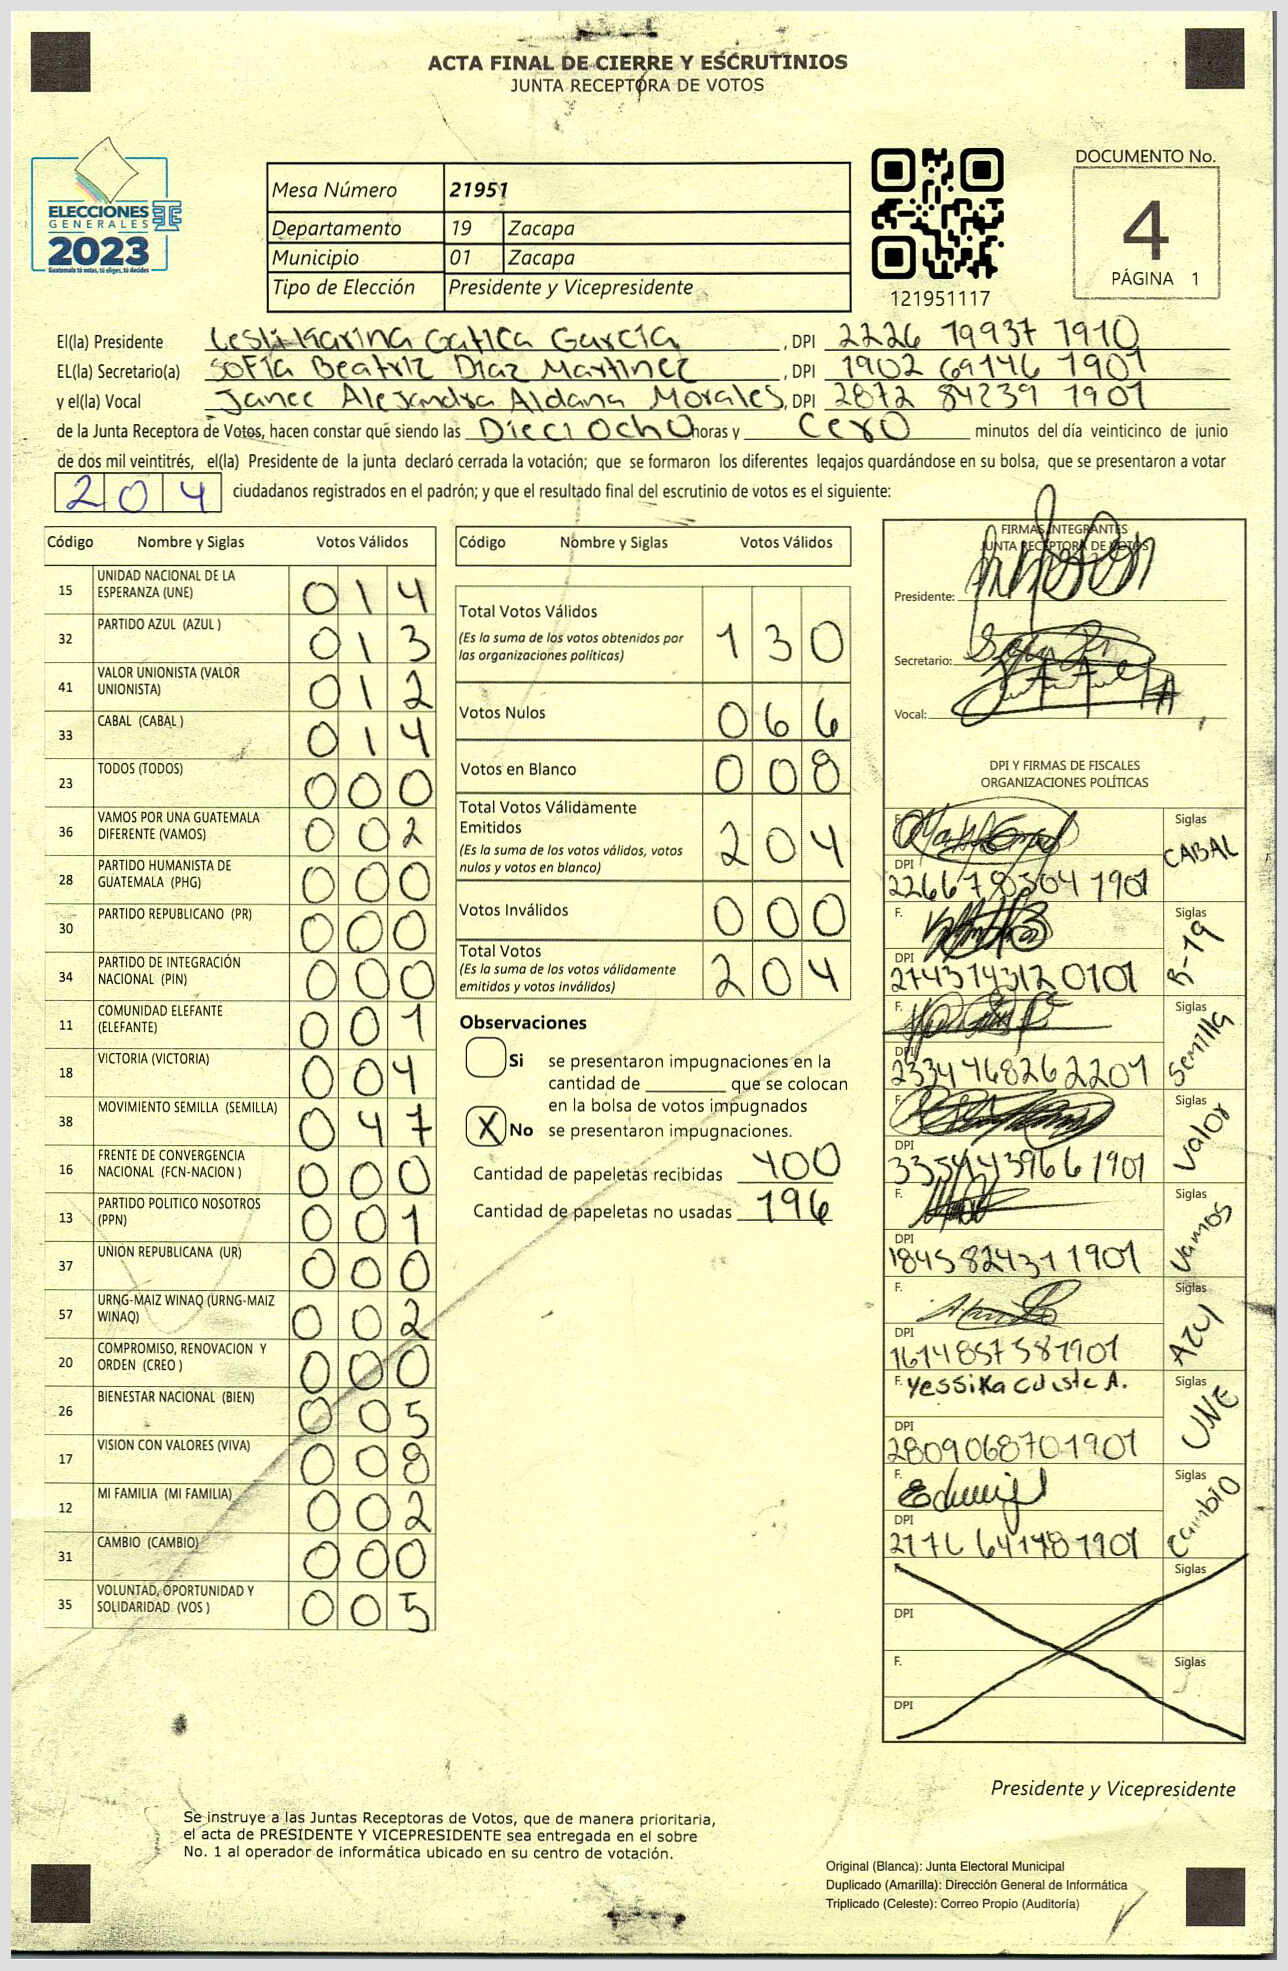 ACTA FINAL DE CIERRE Y ESCRUTINIOS
JUNTA RECEPTORA DE VOTOS
ELECCIONES
GENERALES
2023
Guatemala tú votas, tú eliges, tú decides
Mesa Número 21951
Departamento 19 Zacapa
Municipio 01 Zacapa
Tipo de Elección Presidente y Vicepresidente
121951117
DOCUMENTO No.
4
PÁGINA 1
El(la) Presidente Lesli Karina Gatica García, DPI 2226 19937 1910
EL(la) Secretario(a) Sofía Beatriz Díaz Martínez, DPI 1902 69146 1901
y el(la) Vocal Janee Alejandra Aldana Morales, DPI 2872 84239 1901
de la Junta Receptora de Votos, hacen constar que siendo las Dieciocho horas y Cero minutos del día veinticinco de junio
de dos mil veintitrés, el(la) Presidente de la junta declaró cerrada la votación; que se formaron los diferentes legajos guardándose en su bolsa, que se presentaron a votar
204 ciudadanos registrados en el padrón; y que el resultado final del escrutinio de votos es el siguiente:
Código Nombre y Siglas Votos Válidos
15 UNIDAD NACIONAL DE LA ESPERANZA (UNE) 014
32 PARTIDO AZUL (AZUL ) 013
41 VALOR UNIONISTA (VALOR UNIONISTA) 012
33 CABAL (CABAL ) 014
23 TODOS (TODOS) 000
36 VAMOS POR UNA GUATEMALA DIFERENTE (VAMOS) 002
28 PARTIDO HUMANISTA DE GUATEMALA (PHG) 000
30 PARTIDO REPUBLICANO (PR) 000
34 PARTIDO DE INTEGRACIÓN NACIONAL (PIN) 000
11 COMUNIDAD ELEFANTE (ELEFANTE) 001
18 VICTORIA (VICTORIA) 004
38 MOVIMIENTO SEMILLA (SEMILLA) 047
16 FRENTE DE CONVERGENCIA NACIONAL (FCN-NACION ) 000
13 PARTIDO POLITICO NOSOTROS (PPN) 001
37 UNION REPUBLICANA (UR) 000
57 URNG-MAIZ WINAQ (URNG-MAIZ WINAQ) 002
20 COMPROMISO, RENOVACION Y ORDEN (CREO ) 000
26 BIENESTAR NACIONAL (BIEN) 005
17 VISION CON VALORES (VIVA) 008
12 MI FAMILIA (MI FAMILIA) 002
31 CAMBIO (CAMBIO) 000
35 VOLUNTAD, OPORTUNIDAD Y SOLIDARIDAD (VOS ) 005
Código Nombre y Siglas Votos Válidos
Total Votos Válidos 130
(Es la suma de los votos obtenidos por
las organizaciones políticas)
Votos Nulos 066
Votos en Blanco 008
Total Votos Válidamente
Emitidos 204
(Es la suma de los votos válidos, votos
nulos y votos en blanco)
Votos Inválidos 000
Total Votos 204
(Es la suma de los votos válidamente
emitidos y votos inválidos)
Observaciones
Si se presentaron impugnaciones en la
cantidad de ________ que se colocan
en la bolsa de votos impugnados
X No se presentaron impugnaciones.
Cantidad de papeletas recibidas 400
Cantidad de papeletas no usadas 196
FIRMAS INTEGRANTES
JUNTA RECEPTORA DE VOTOS
Presidente:
Secretario:
Vocal:
DPI Y FIRMAS DE FISCALES
ORGANIZACIONES POLÍTICAS
F. Siglas CABAL
DPI 2266 78504 1901
F. Siglas B-19
DPI 2743743120101
F. Siglas Semilla
DPI 2334468262201
F. Siglas Valor
DPI
F. Siglas Vamos
DPI 1845824311901
F. Siglas Azul
DPI 1614857581901
F. Yessika Celeste A. Siglas UNE
DPI 2809068701901
F. Siglas Cambio
DPI
F. Siglas
DPI
F. Siglas
DPI
Presidente y Vicepresidente
Se instruye a las Juntas Receptoras de Votos, que de manera prioritaria,
el acta de PRESIDENTE Y VICEPRESIDENTE sea entregada en el sobre
No. 1 al operador de informática ubicado en su centro de votación.
Original (Blanca): Junta Electoral Municipal
Duplicado (Amarilla): Dirección General de Informática
Triplicado (Celeste): Correo Propio (Auditoría)